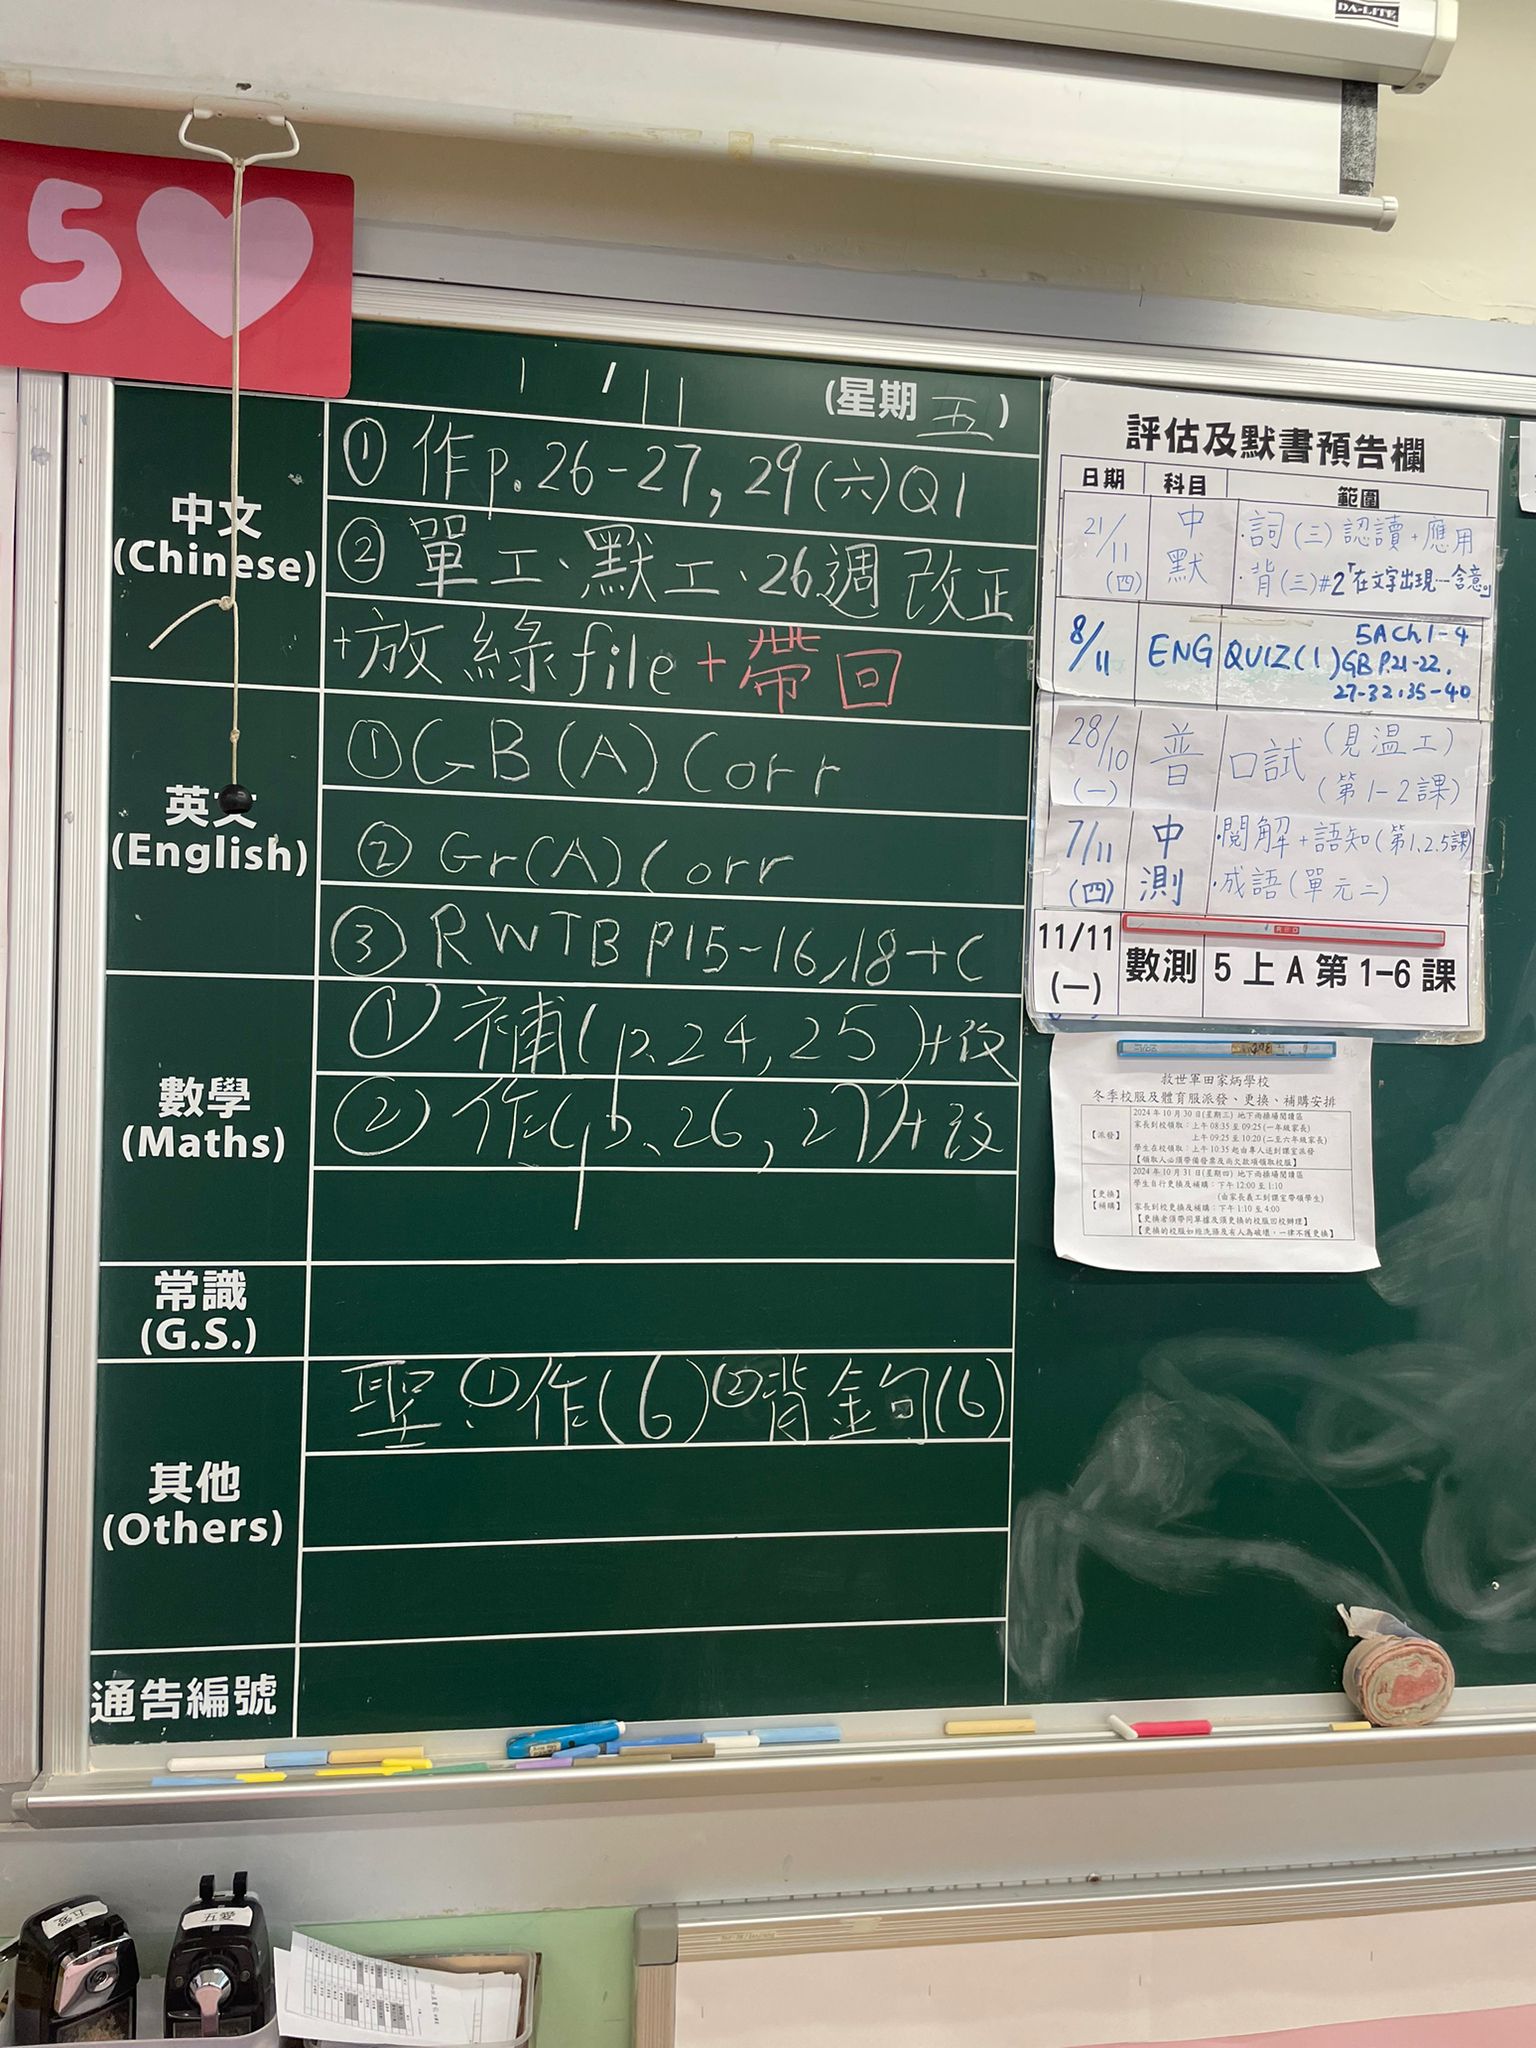 DA-LITE
5
1/11 (星期五)
中文
(Chinese)
① 作p.26-27, 29(六)Q1
② 單工、默工、26週 改正
+放 綠file + 帶回
英文
(English)
① GB(A) Corr
② Gr(A) Corr
③ RWTB P15-16,18+C
數學
(Maths)
① 補(p.24, 25)+改
② 作(p.26, 27)+改
常識
(G.S.)
其他
(Others)
聖:①作(6)②背金句(6)
通告編號
評估及默書預告欄
日期 科目 範圍
21/11 (四) 中默 ·詞(三)認讀+應用
·背(三)#2「在文字出現…含意」
8/11 ENG QUIZ(1) 5A Ch1-4
GB P.21-22,
27-32,35-40
28/10 (一) 普 口試 (見溫工)
(第1-2課)
7/11 (四) 中測 ·閱解+語知(第1,2,5課)
·成語(單元二)
11/11 (一) 數測 5上A第1-6課
救世軍田家炳學校
冬季校服及體育服派發、更換、補購安排
【派發】 2024年10月30日(星期三) 地下雨操場閱讀區
家長到校領取:上午 08:35 至 09:25 (一年級家長)
上午 09:25 至 10:20 (二至六年級家長)
學生在校領取:上午 10:35 起由專人送到課室派發
【領取人必須帶備發票及尚欠款項領取校服】
【更換】
【補購】
2024年10月31日(星期四) 地下雨操場閱讀區
學生自行更換及補購:下午 12:00 至 1:10
(由家長義工到課室帶領學生)
家長到校更換及補購:下午 1:10 至 4:00
【更換者須帶同單據及須更換的校服回校辦理】
【更換的校服如經洗滌及有人為破壞,一律不獲更換】
五愛
五愛